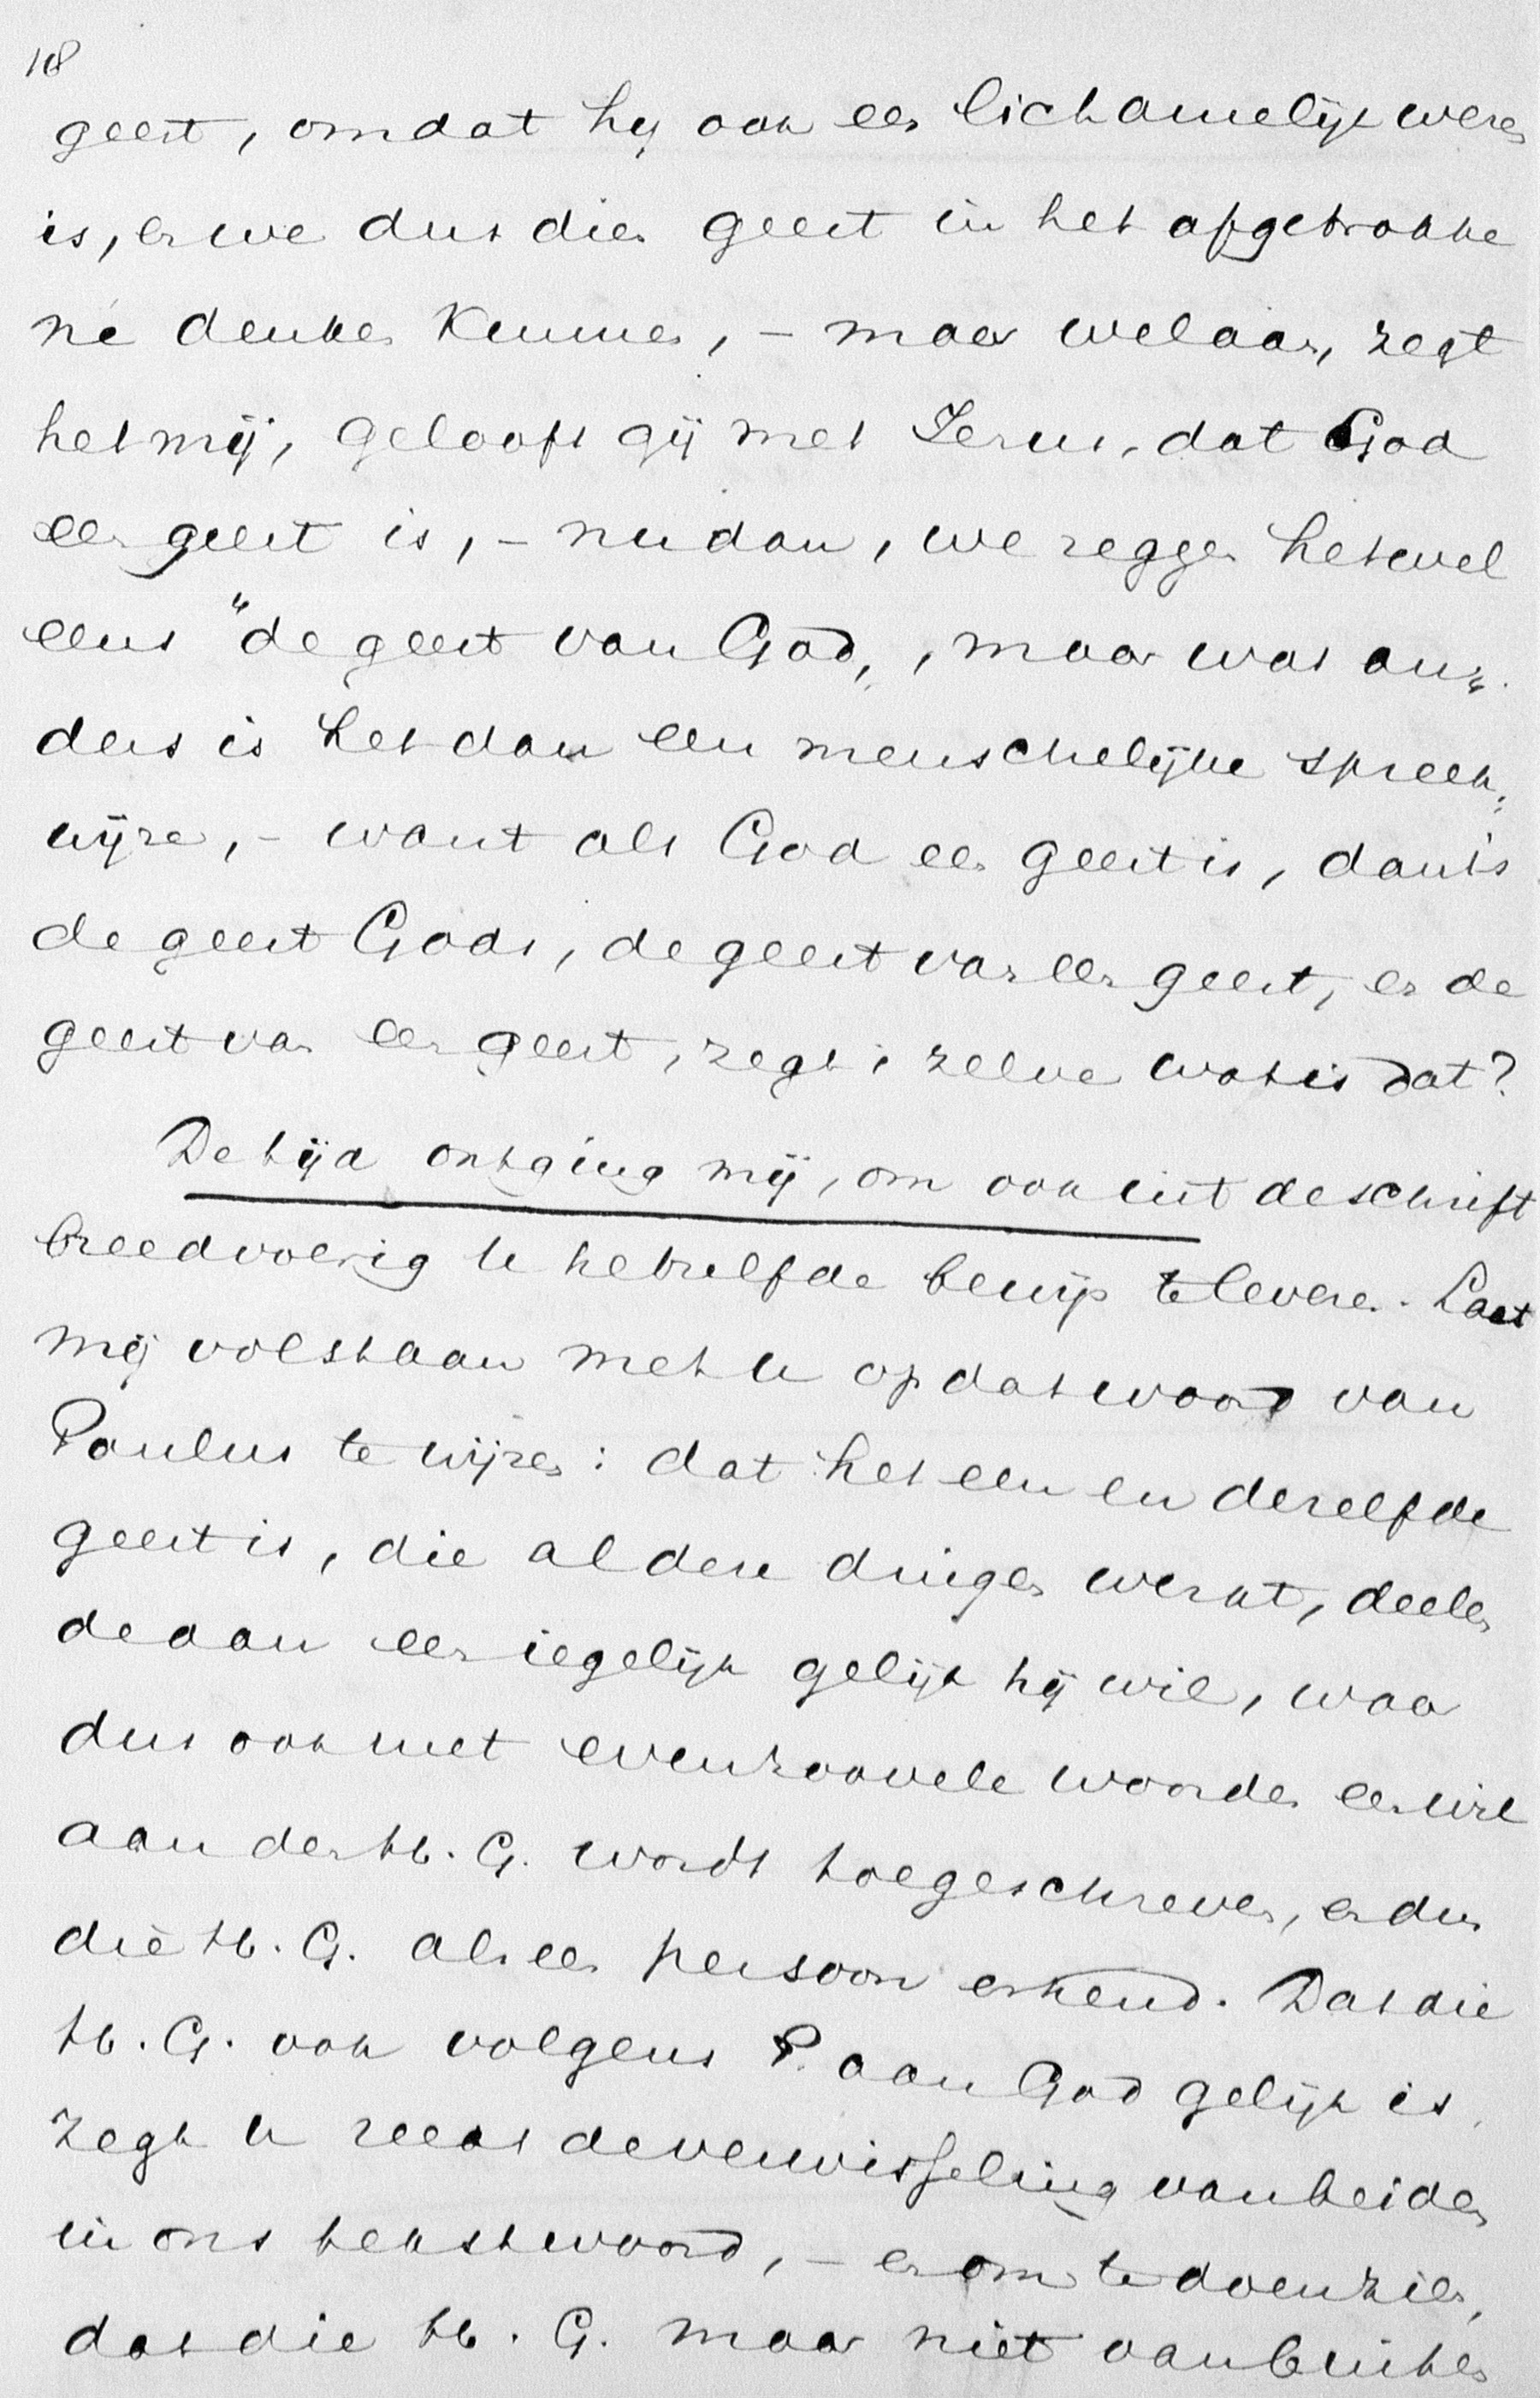 18
geest, omdat hij ook een lichamelijk wezen
is, en we dus dien geest in het afgetrokke
ne denken kunnen, – maar welaan, zegt
het mij, gelooft gij met Jezus, dat God
een geest is, – nu dan, we zeggen het wel
eens "de geest van God„, maar wat an„
ders is het dan een menschelijke spreek„
wijze, – want als God een geest is, dan is
de geest Gods, de geest van een geest, en de
geest van een geest, zegt  zelve wat is dat?
De tijd ontging mij, om ook uit de schrift
breedvoerig u hetzelfde bewijs te leveren. Laat
mij volstaan met u op dat woord van
Paulus te wijzen: dat het een en dezelfde
geest is, die al deze dingen werkt, deelen
de aan een iegelijk gelijk hij wil, waar
dus ook met evenzoovele woorden een wil
aan den H. G. wordt toegeschreven, en dus
die H. G. als een persoon erkend. Dat die
H. G. ook volgens P. aan God gelijk is,
zegt u reeds de verwisseling van beiden
in ons tekstwoord, – en om te doen zien,
dat die H. G. maar niet van buiten